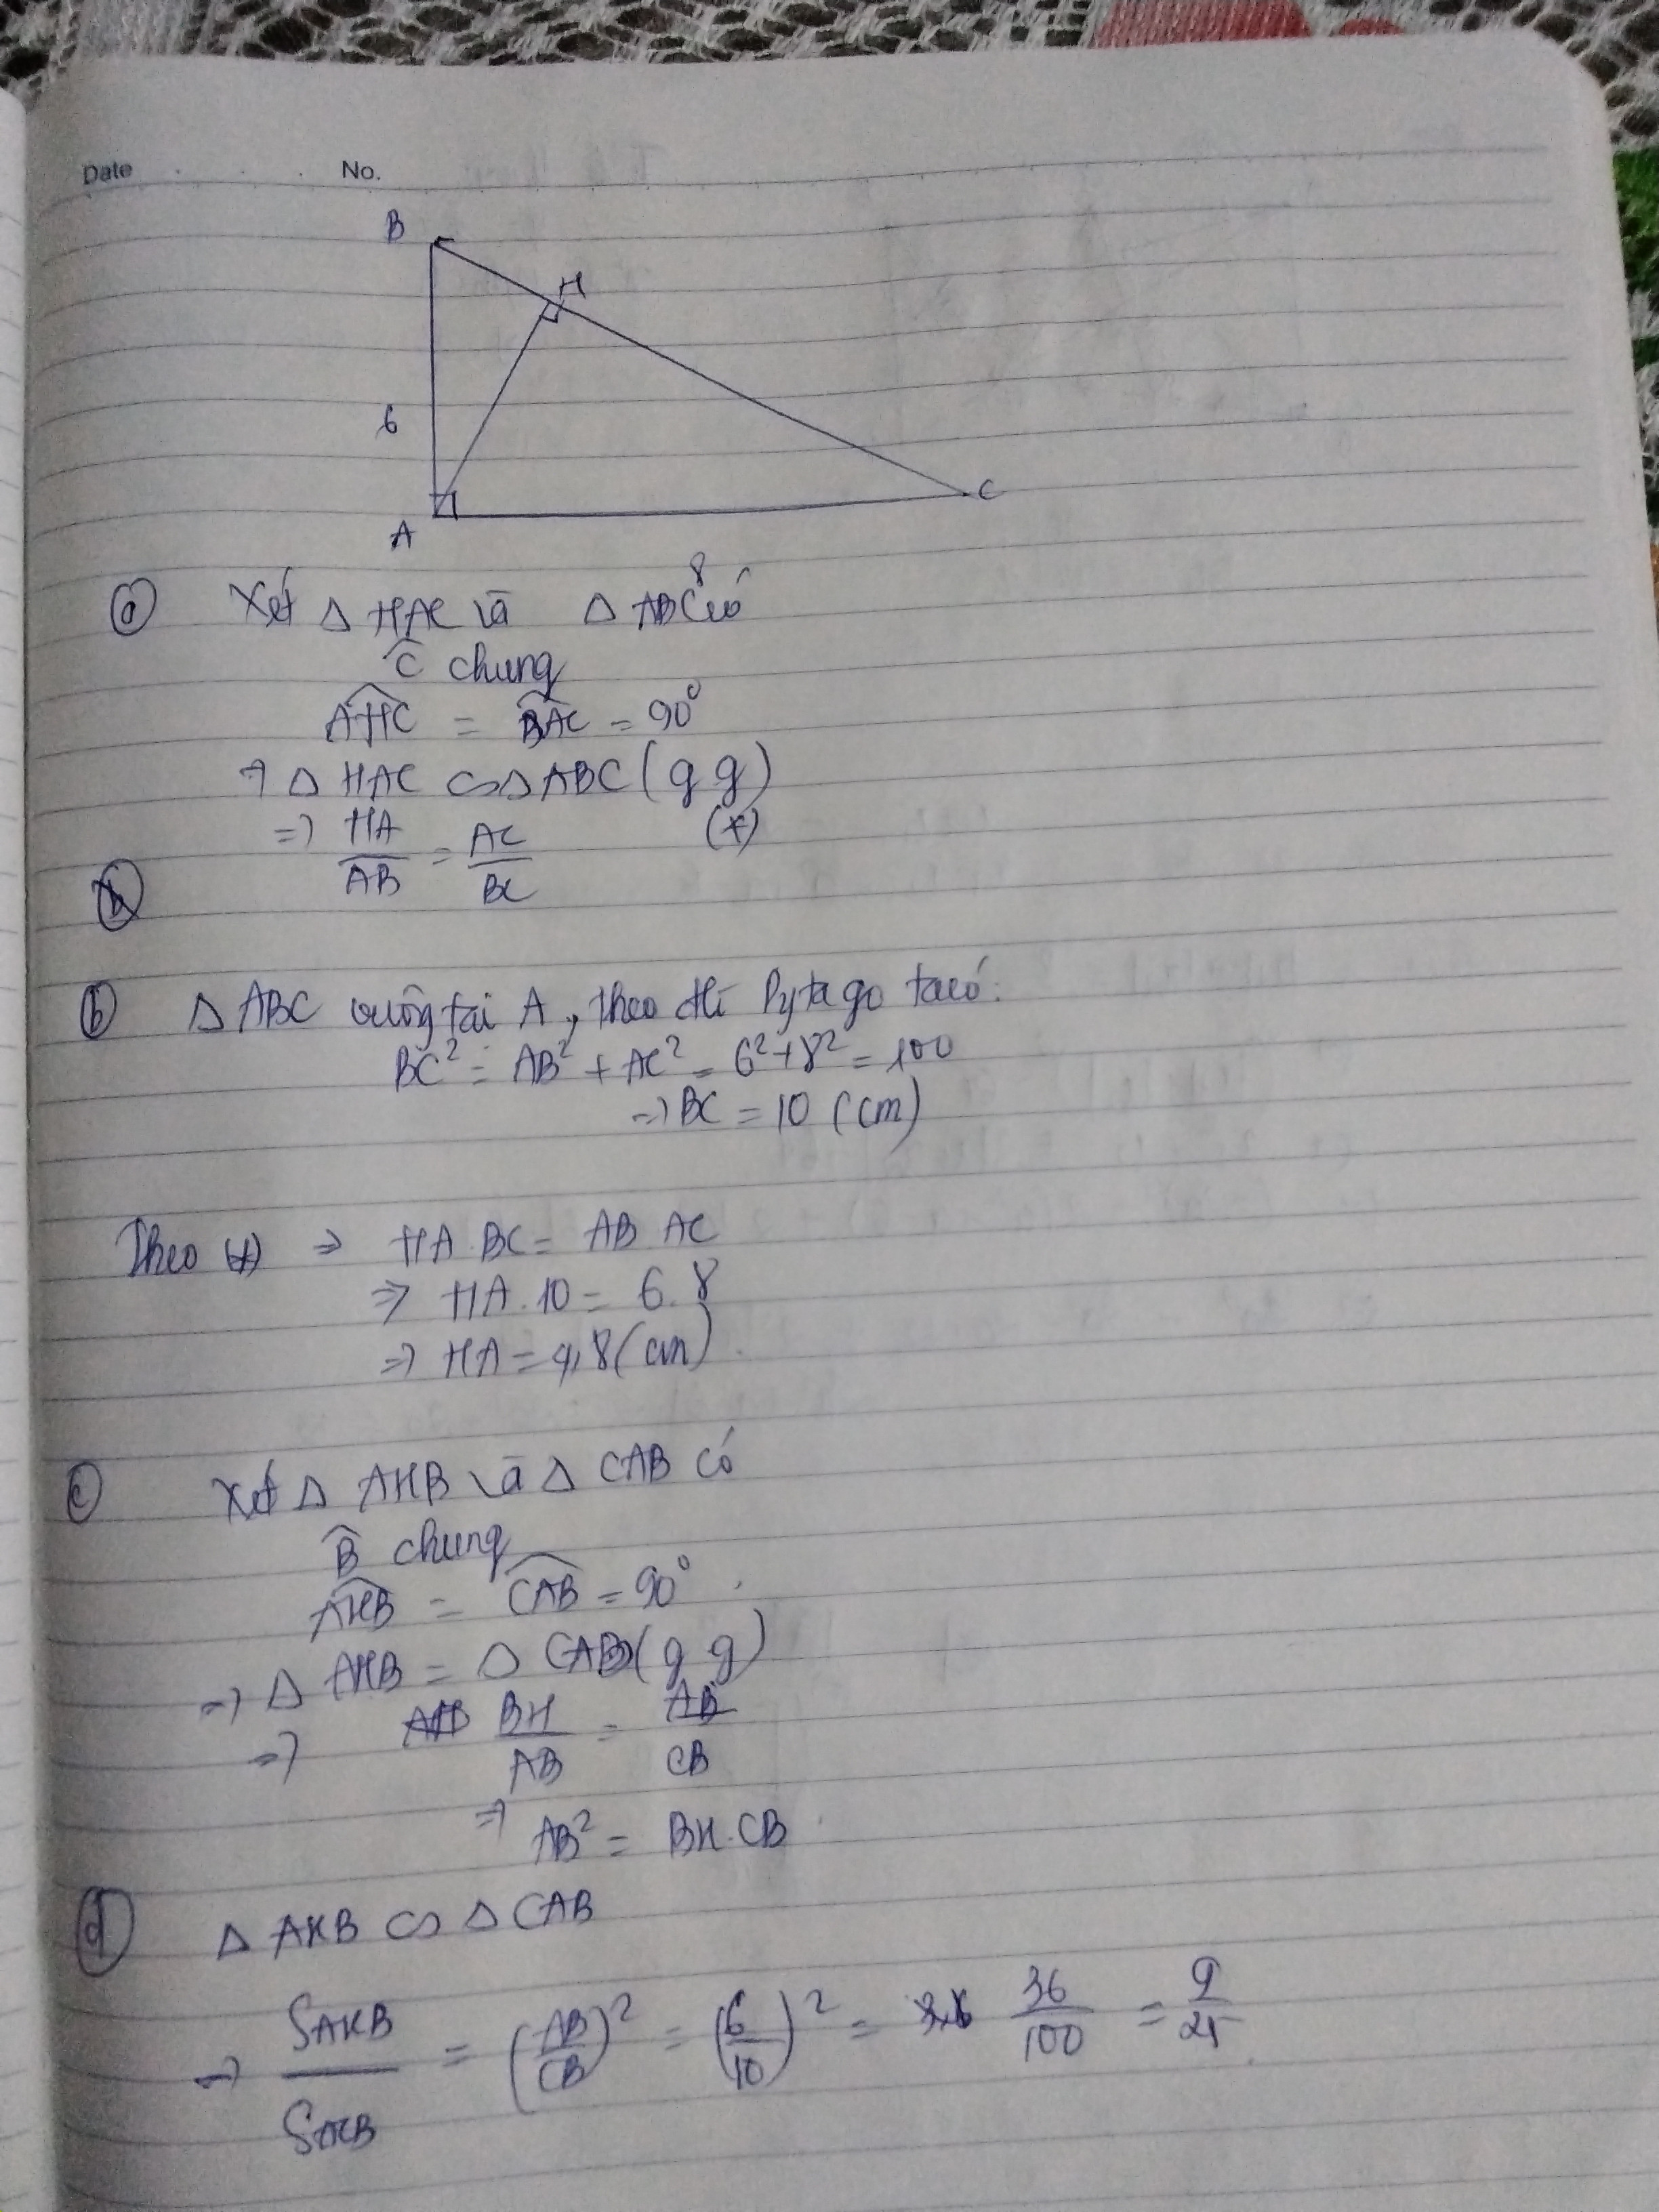 Date No.
B
H
6
A
C
8
a) Xét Δ HAC và Δ ABC có
Ĉ chung
AHC = BAC = 90°
⇒ Δ HAC ∽ Δ ABC (g g)
⇒ HA/AB = AC/BC (*)
b) Δ ABC vuông tại A, theo đlí Pytago ta có:
BC² = AB² + AC² = 6² + 8² = 100
⇒ BC = 10 (cm)
Theo (*) ⇒ HA. BC = AB AC
⇒ HA. 10 = 6. 8
⇒ HA = 4,8 (cm)
c) Xét Δ AHB và Δ CAB có
B̂ chung
AHB = CAB = 90°
⇒ Δ AHB = Δ CAB (g g)
⇒ BH/AB = AB/CB
⇒ AB² = BH. CB
d) Δ AHB ∽ Δ CAB
⇒ SAHB/SACB = (AB/CB)² = (6/10)² = 36/100 = 9/25